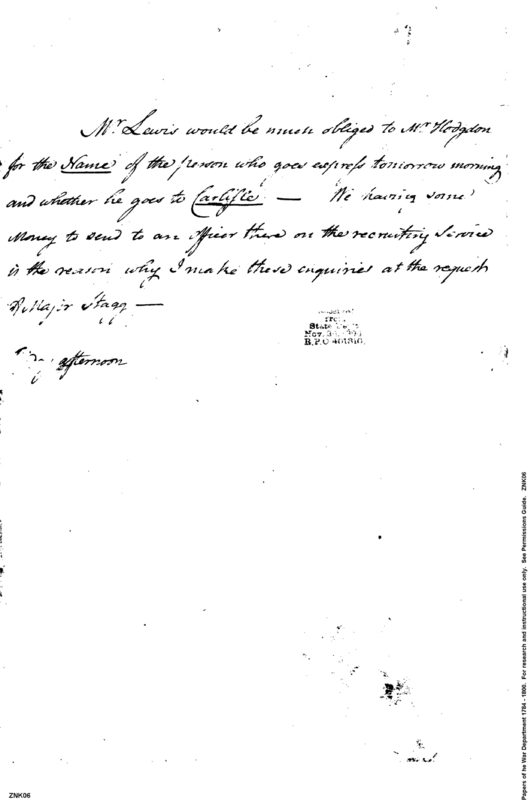 Mr Lewis would be much obliged to Mr Hodgdon
for the Name of the person who goes express tomorrow morning
and whether he goes to Carlisle — We having some
Money to send to an officer there on the recruiting Service
is the reason why I make these enquiries at the request
Major Stagg —
afternoon
from
State Dept
Nov.
R.P.O 401316.
Papers of he War Department 1784 - 1800. For research and instructional use only. See Permissions Guide. ZNK06
ZNK06